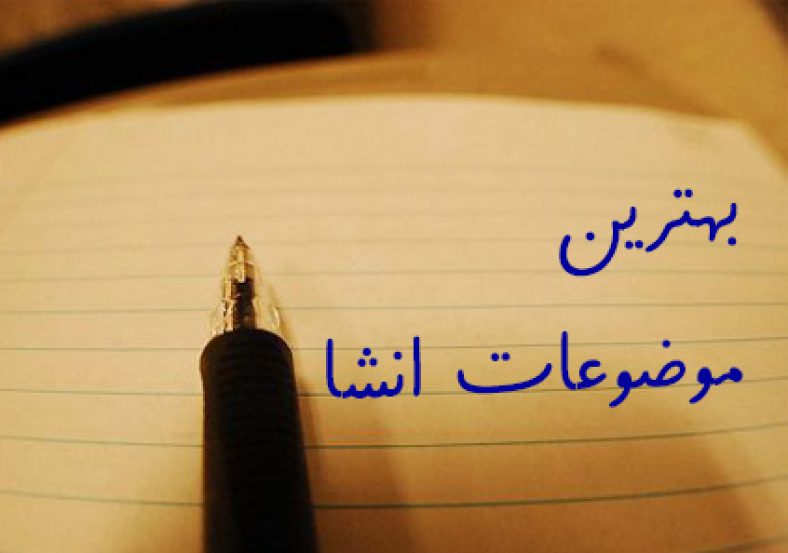 بهترین
موضوعات انشا